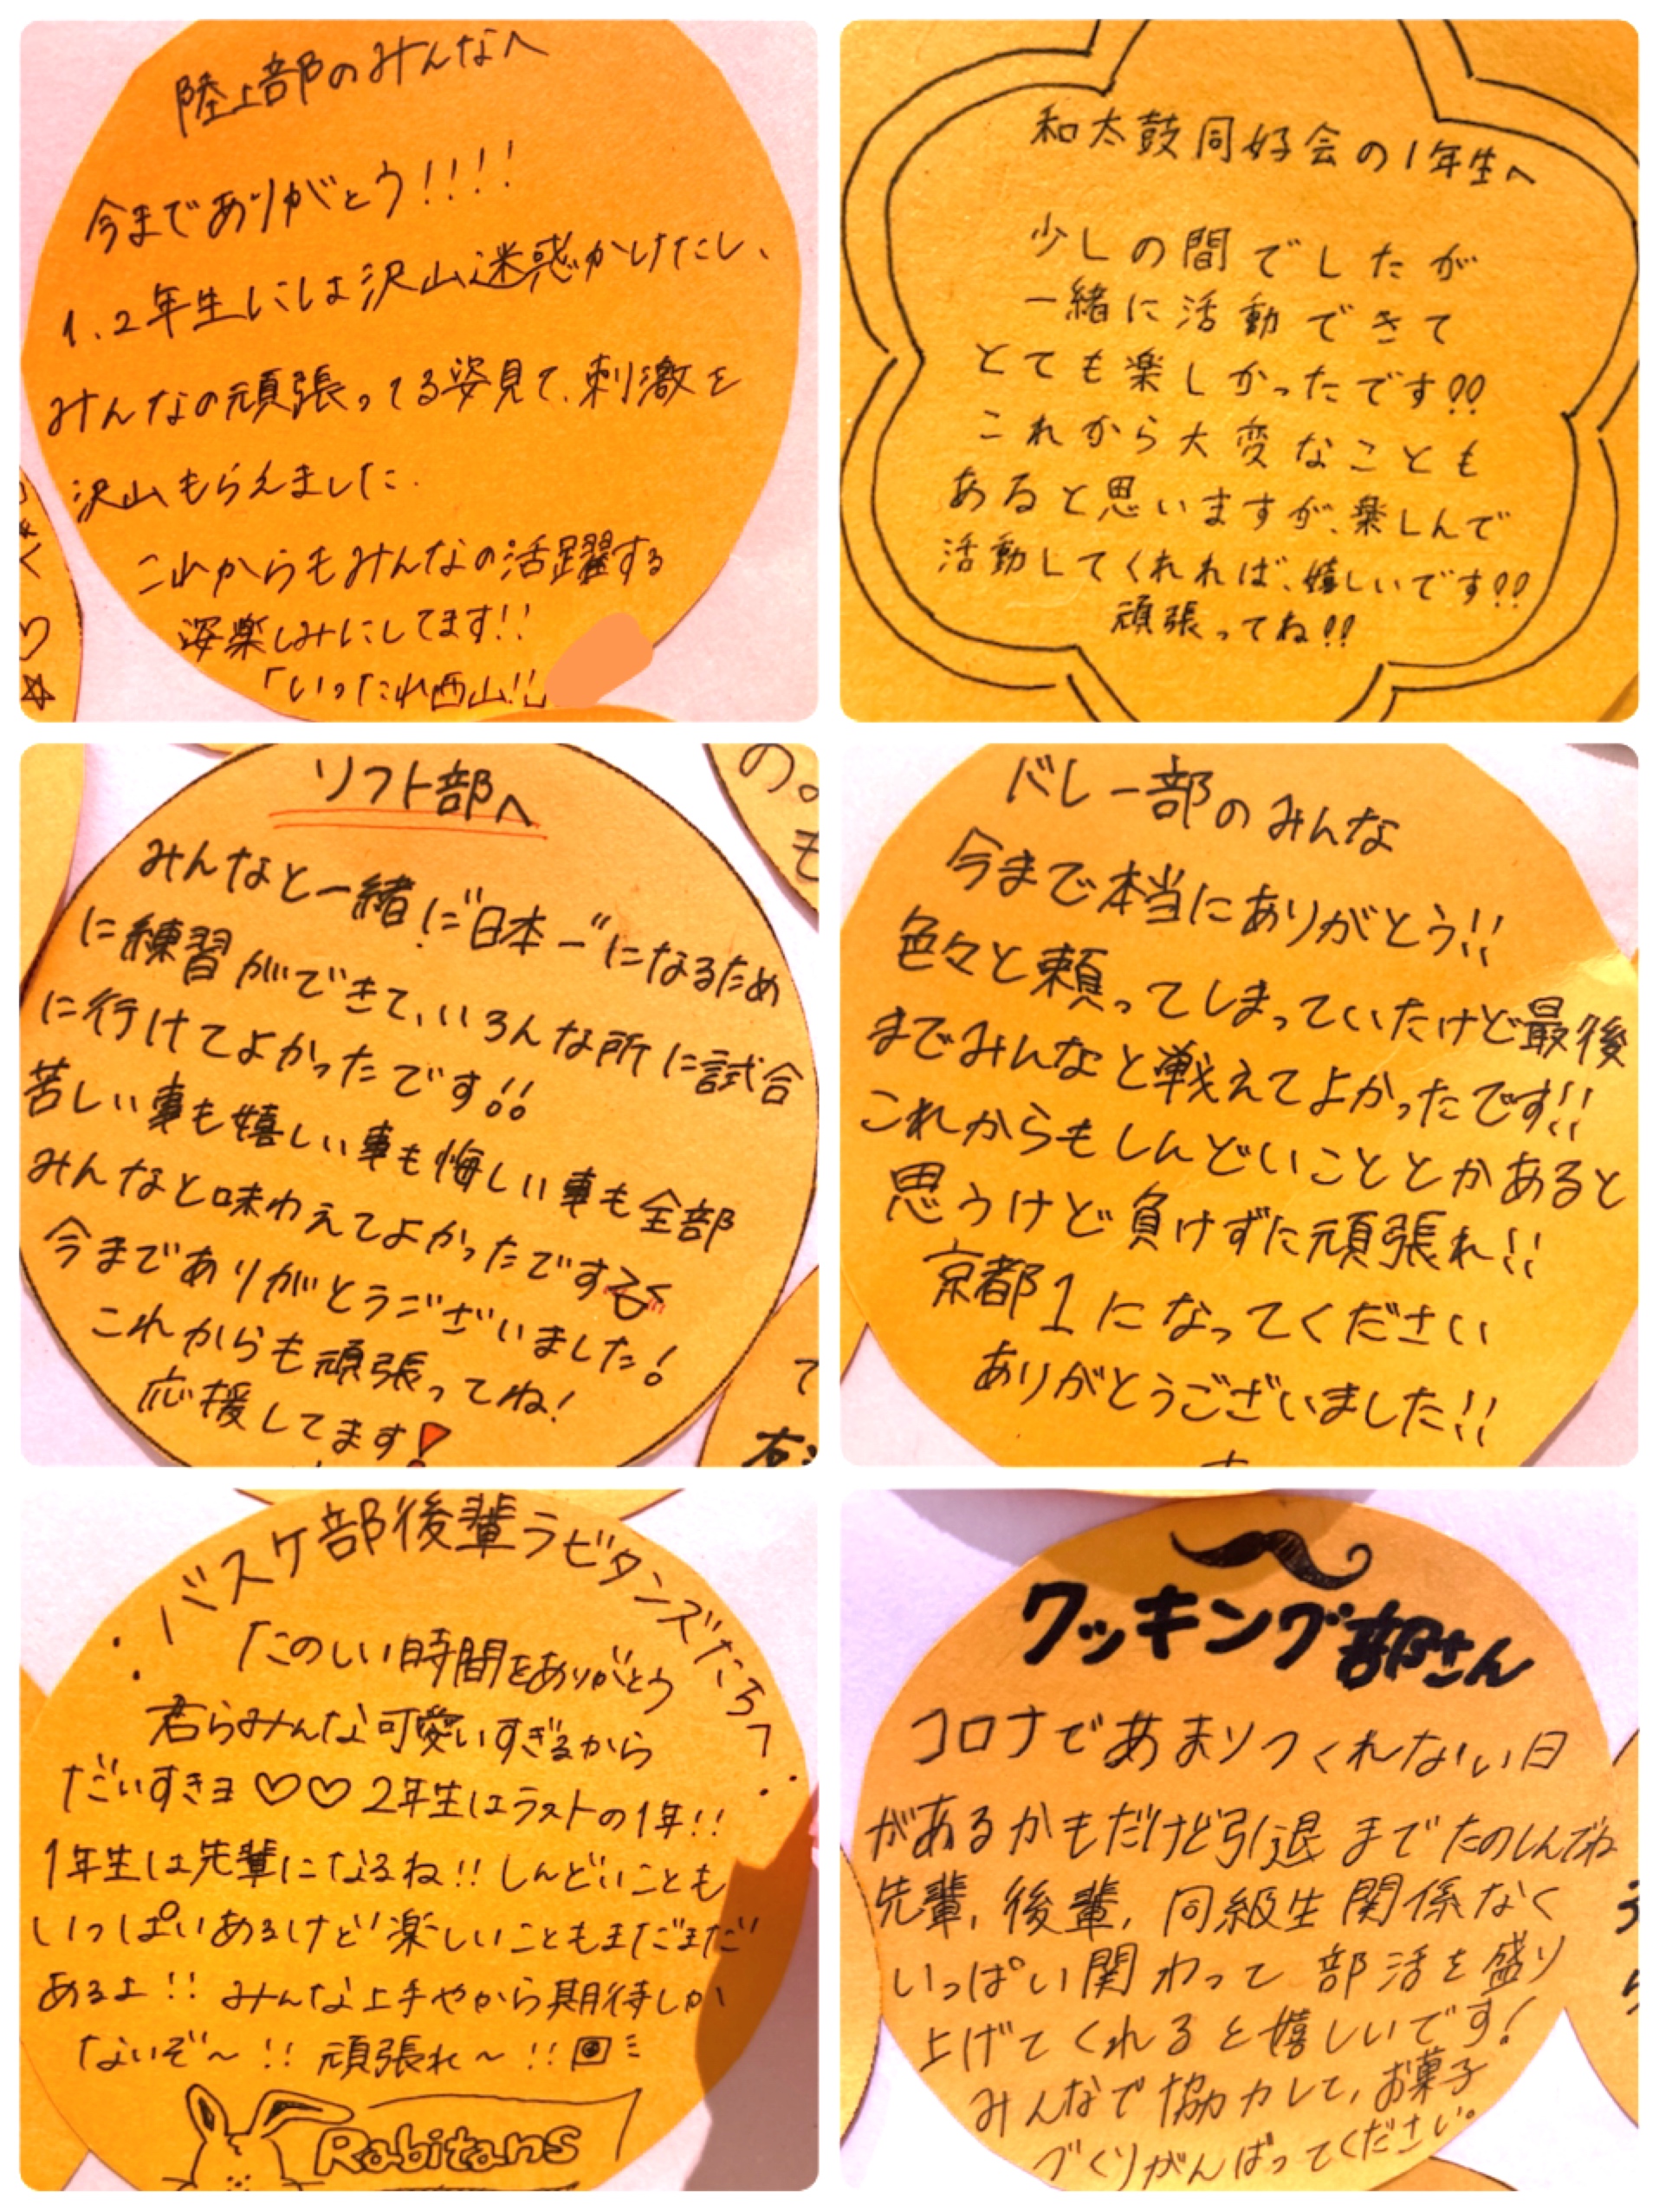 陸上部のみんなへ
今までありがとう!!!!
1、2年生には沢山迷惑かけたし、
みんなの頑張ってる姿見て、刺激を
沢山もらえました.
これからもみんなの活躍する
姿楽しみにしてます!!
「いったれ西山!!」
和太鼓同好会の1年生へ
少しの間でしたが
一緒に活動できて
とても楽しかったです!!
これから大変なことも
あると思いますが、楽しんで
活動してくれれば、嬉しいです!!
頑張ってね!!
ソフト部へ
みんなと一緒に"日本一"になるため
に練習ができて、いろんな所に試合
に行けてよかったです!!
苦しい事も嬉しい事も悔しい事も全部
みんなと味わえてよかったです
今までありがとうございました!
これからも頑張ってね!
応援してます!
バレー部のみんな
今まで本当にありがとう!!
色々と頼ってしまっていたけど最後
までみんなと戦えてよかったです!!
これからもしんどいこととかあると
思うけど負けずた頑張れ!!
京都1になってください
ありがとうございました!!
バスケ部後輩ラビタンズたちへ
たのしい時間をありがとう
君らみんな可愛いすぎるから
だいすきヨ♡♡ 2年生はラストの1年!!
1年生は先輩になるね!! しんどいことも
いっぱいあるけど楽しいこともまだまだ
あるよ!! みんな上手やから期待しか
ないぞ〜!! 頑張れ〜!!
Rabitans
クッキング部さん
コロナであまりつくれない日
があるかもだけど引退までたのしんでね
先輩、後輩、同級生関係なく
いっぱい関わって部活を盛り
上げてくれると嬉しいです!
みんなで協力して、お菓子
づくりがんばってください。